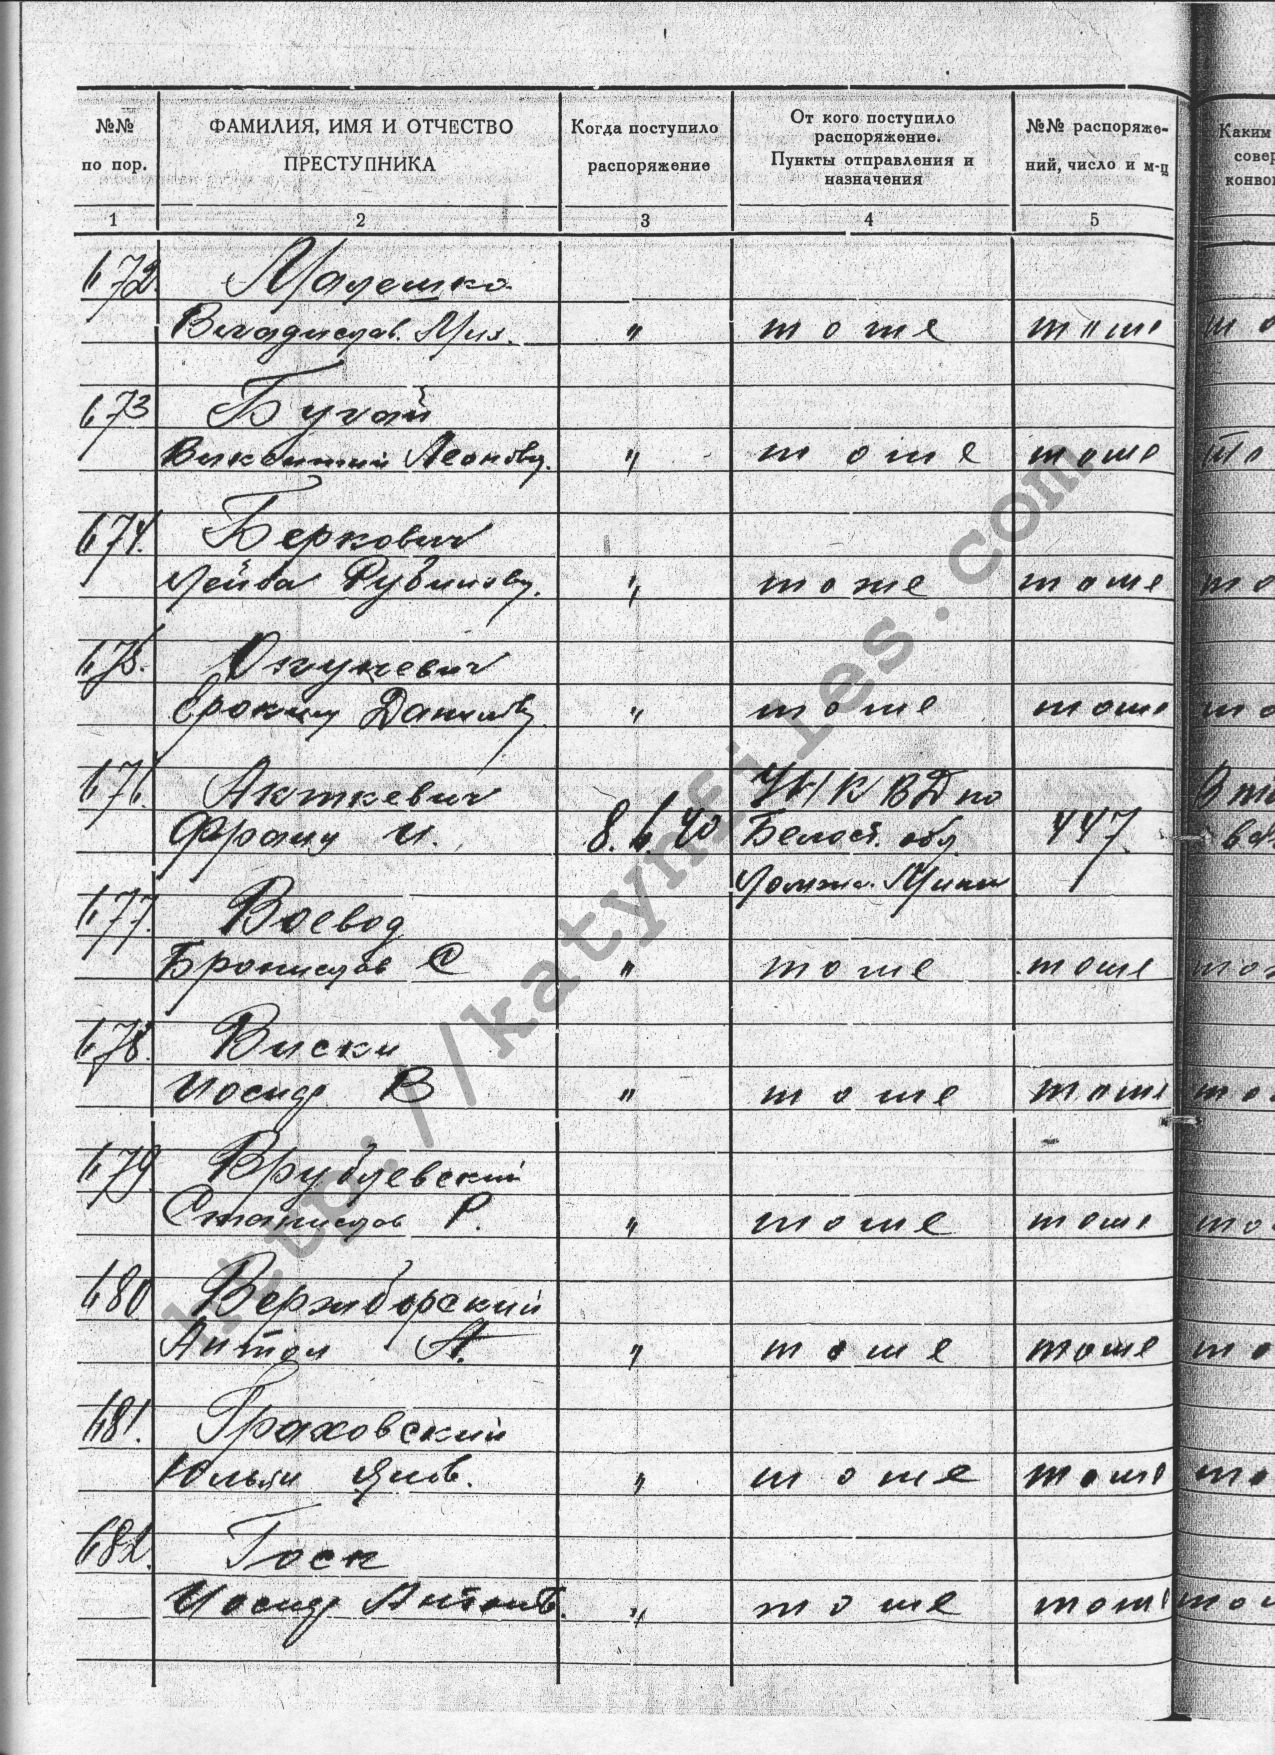 №№ по пор.
ФАМИЛИЯ, ИМЯ И ОТЧЕСТВО ПРЕСТУПНИКА
Когда поступило распоряжение
От кого поступило распоряжение. Пункты отправления и назначения
№№ распоряже-ний, число и м-ц
Каким
совер
конвой
1 2 3 4 5
672. Малешко
Владислав Мих. " тоже тоже то
673 Бугай
Викентий Леонов. " тоже тоже то
674. Беркович
Лейба Рубинов. " тоже тоже то
675. Окуневич
Ероким Данилов. " тоже тоже то
676. Акткевич УНКВД по
Франц И. 8.6.40 Белост. обл. 447
Ломжа. Минск
677. Воевод
Бронислав С " тоже тоже тож
678. Виски
Иосиф В " тоже тоже то
679 Врублевский
Станислав Р. " тоже тоже то
680 Вержиборский
Антон А. " тоже тоже то
681. Граховский
Юльян Янов. " тоже тоже то
682. Госк
Иосиф Антонов. " тоже тоже то
http://katynfiles.com